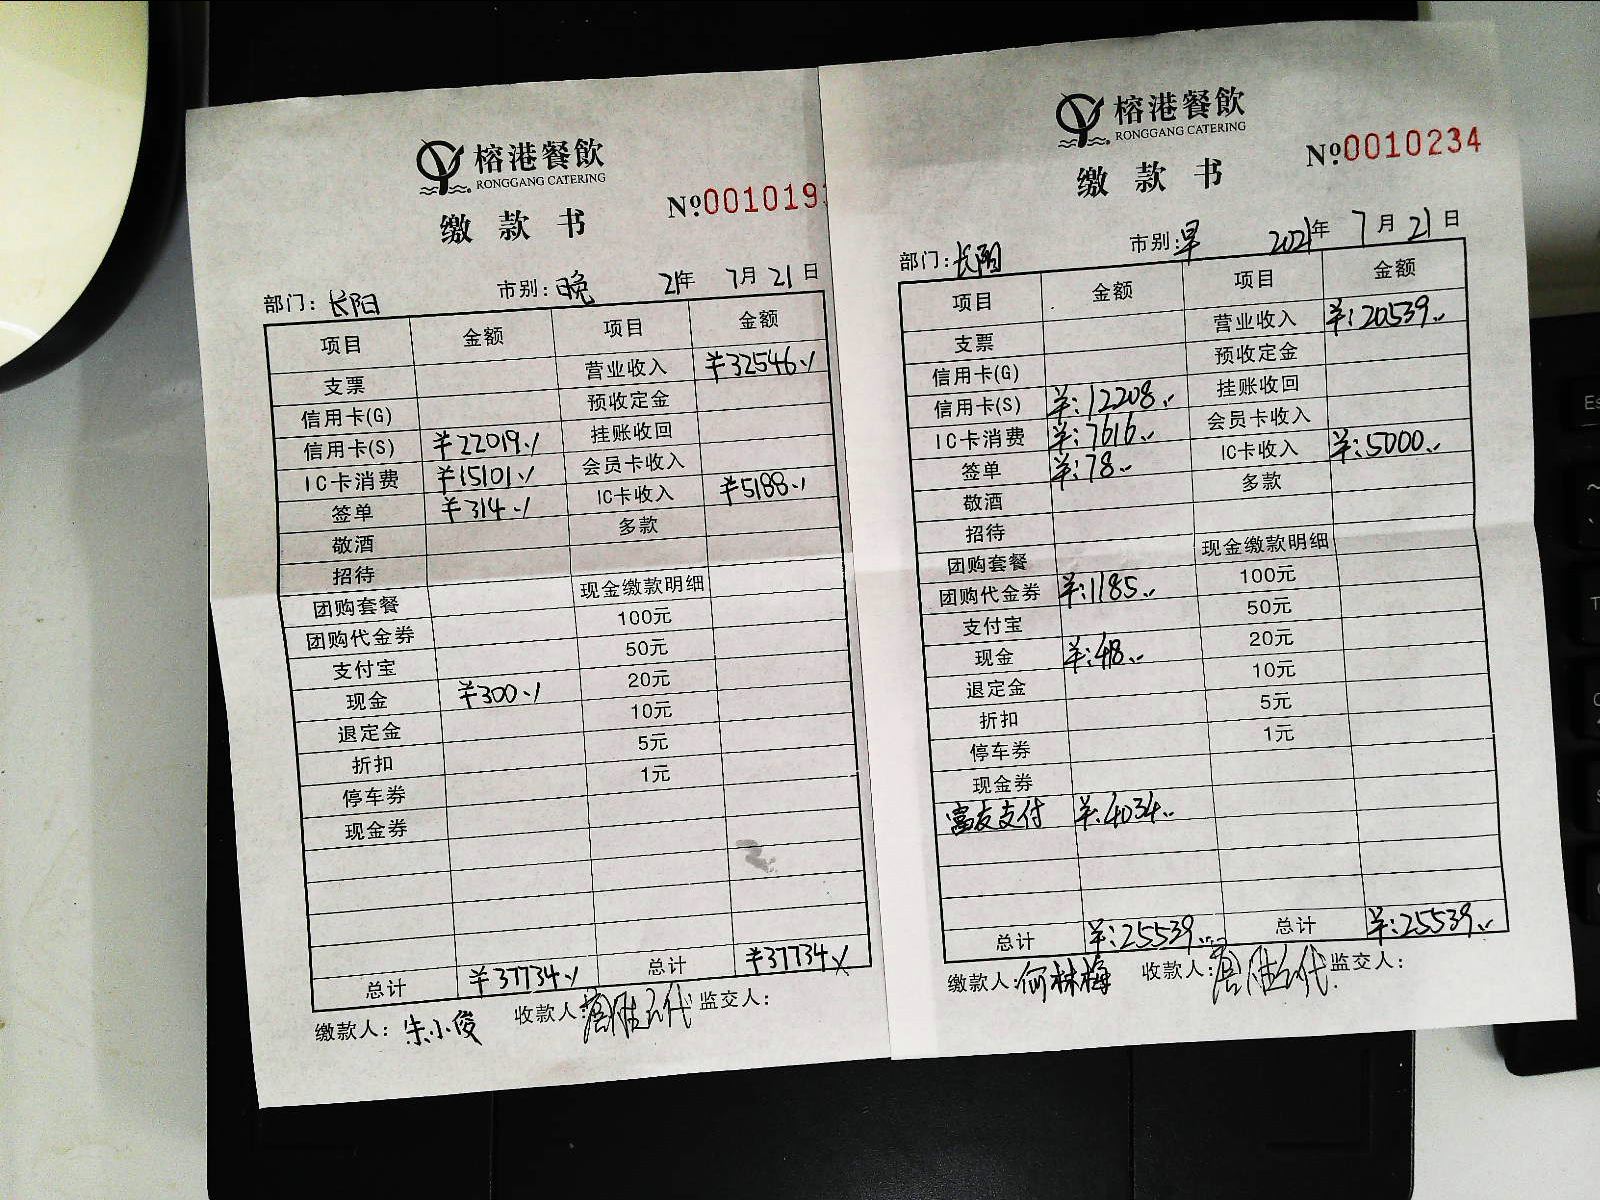 榕港餐飲
RONGGANG CATERING
缴款书
№001019
部门：长阳 市别：晚 21年 7月21日
项目 金额 项目 金额
支票 营业收入 ¥32546
信用卡(G) 预收定金
信用卡(S) ¥22019 挂账收回
IC卡消费 ¥15101 会员卡收入
签单 ¥314 IC卡收入 ¥5188
敬酒 多款
招待
团购套餐 现金缴款明细
团购代金券 100元
支付宝 50元
现金 ¥300 20元
退定金 10元
折扣 5元
停车券 1元
现金券
总计 ¥37734 总计 ¥37734
缴款人：朱小俊 收款人： 监交人：
榕港餐飲
RONGGANG CATERING
缴款书
№0010234
部门：长阳 市别：早 2021年 7月21日
项目 金额 项目 金额
支票 营业收入 ¥:20539
信用卡(G) 预收定金
信用卡(S) ¥:12208 挂账收回
IC卡消费 ¥:7616 会员卡收入
签单 ¥:78 IC卡收入 ¥:5000
敬酒 多款
招待
团购套餐 现金缴款明细
团购代金券 ¥:1185 100元
支付宝 50元
现金 ¥:418 20元
退定金 10元
折扣 5元
停车券 1元
现金券
富友支付 ¥:4034
总计 ¥:25539 总计 ¥:25539
缴款人：何林梅 收款人： 监交人：
Es